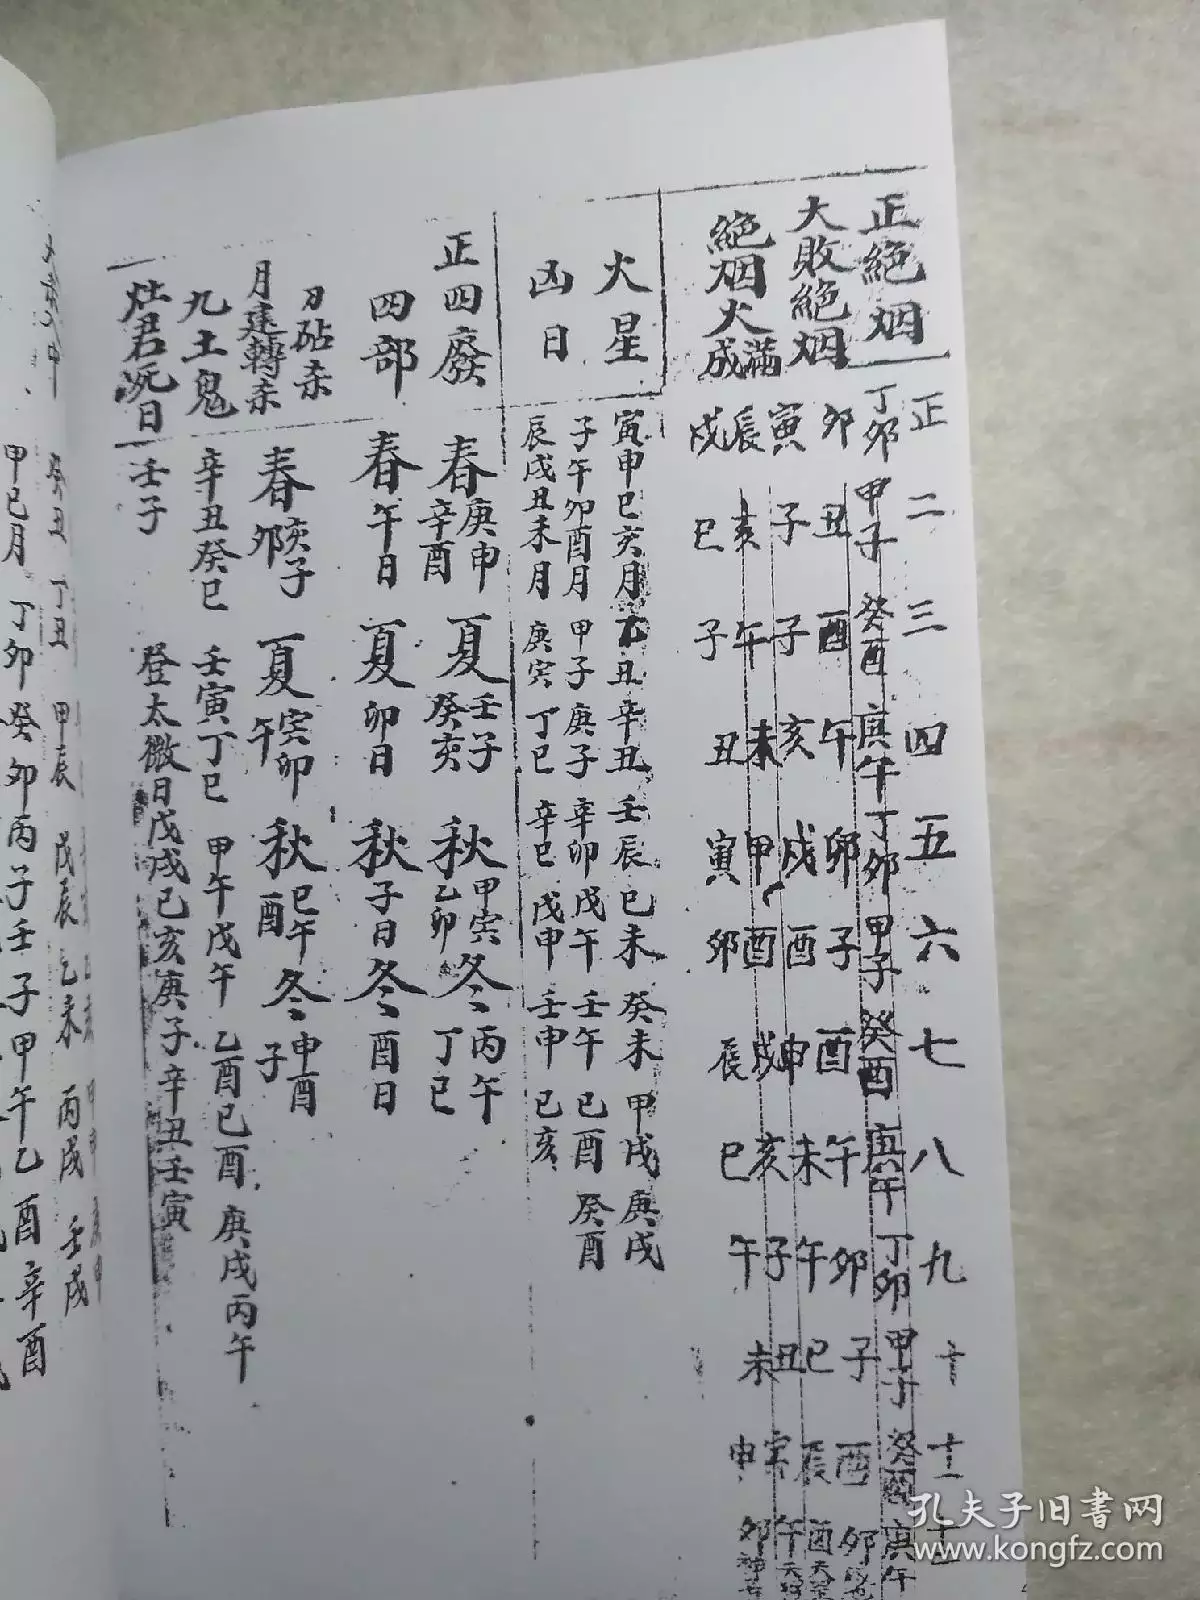 正 二 三 四 五 六 七 八 九 十 十一 十二
正絕烟 丁卯 甲子 癸酉 庚午 丁卯 甲子 癸酉 庚午 丁卯 甲子 癸酉 庚午
大敗絕烟 卯 丑 酉 午 卯 子 酉 午 卯 子 酉 卯
寅 子 子 亥 戌 酉 申 未 午 巳 辰 酉
絕烟火 滿 辰 亥 午 未 甲 酉 戌 亥 子 丑 寅 午
成 戌 巳 子 丑 寅 卯 辰 巳 午 未 申 卯
火星 寅申巳亥月 乙丑 辛丑 壬辰 己未 癸未 甲戌 庚戌
凶日 子午卯酉月 甲子 庚子 辛卯 戊午 壬午 己酉 癸酉
辰戌丑未月 庚寅 丁巳 辛巳 戊申 壬申 己亥
正四廢 春 庚申 辛酉 夏 壬子 癸亥 秋 甲寅 乙卯 冬 丙午 丁巳
四部 春午日 夏卯日 秋子日 冬酉日
刀砧杀 春 亥子 夏 寅卯 秋 巳午 冬 申酉
月建轉杀 卯 午 酉 子
九土鬼 辛丑 癸巳 壬寅 丁巳 甲午 戊午 乙酉 己酉 庚戌 丙午
灶君死日 壬子 登太微日 戊戌 己亥 庚子 辛丑 壬寅
癸丑 丁丑 甲辰 戊辰 乙未 丙戌 壬戌
甲己月 丁卯 癸卯 丙子 壬子 甲午 乙酉 辛酉
孔夫子旧书网
www.kongfz.com